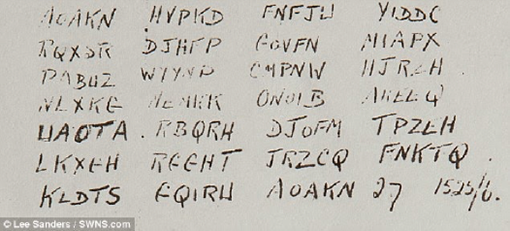 AOAKN HVPKD FNFJW YIDDC
RQXSR DJHFP GOVFN MIAPX
PABUZ WYYNP CMPNW HJRZH
NLXKG MEMKK ONOIB AKEEQ
UAOTA RBQRH DJOFM TPZEH
LKXGH RGGHT JRZCQ FNKTQ
KLDTS GQIRW AOAKN 27 1525/6.
© Lee Sanders / SWNS.com